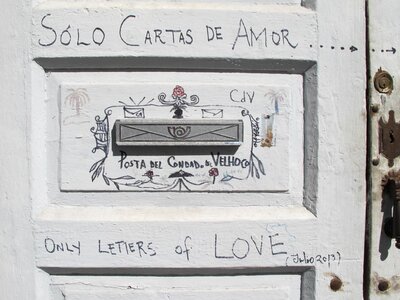 SÓLO CARTAS DE AMOR
CdV
POSTA DEL CONDADO DE VELHOCO
ONLY LETTERS of LOVE
(Julio 2013)